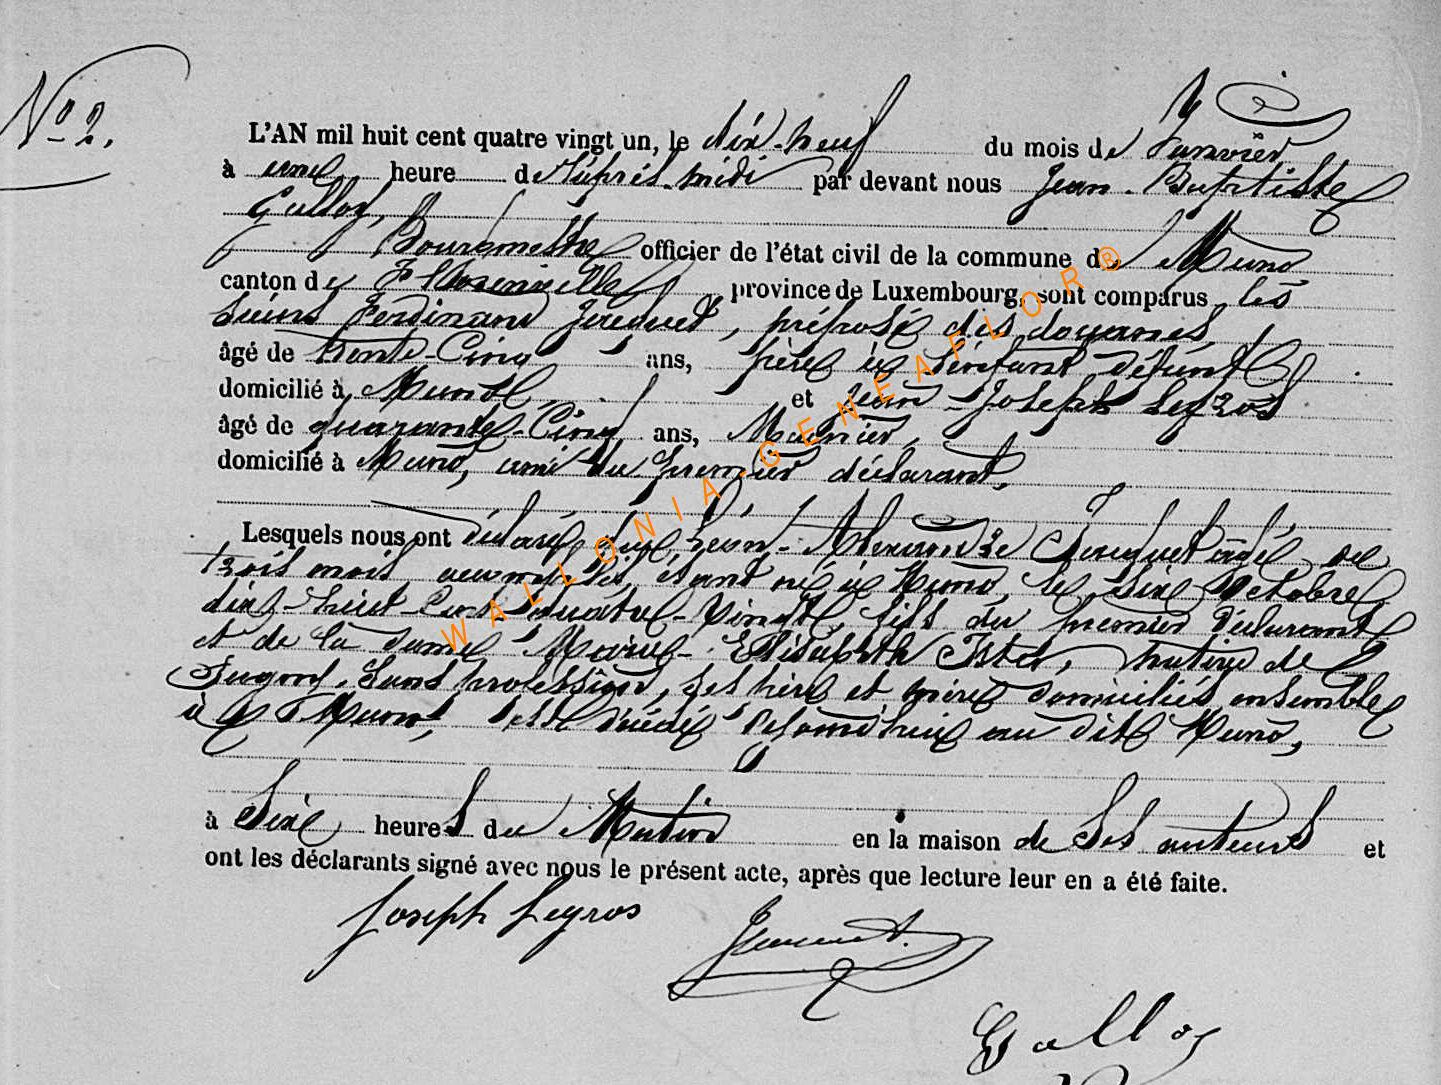 No 2.
L'AN mil huit cent quatre vingt un, le dix-neuf du mois de Janvier
à une heure de l'après-midi par devant nous Jean-Baptiste
Galloy,
Bourgmestre officier de l'état civil de la commune de Muno
canton de Florenville province de Luxembourg, sont comparus les
sieurs Ferdinand Jacquet, préposé des douanes,
âgé de trente-cinq ans, père de l'enfant défunt
domicilié à Muno, et Jean-Joseph Legros
âgé de quarante-cinq ans,
domicilié à Muno, ami du premier déclarant,
Lesquels nous ont déclaré que Léon-Alexandre Jacquet âgé de
trois mois, étant né à Muno, le six Octobre
dix-huit-cent-quatre-vingt, fils du premier déclarant
et de la dame Marie-Elisabeth native de
sans profession, ses père et mère domiciliés ensemble
à Muno, est décédé aujourd'hui au dit Muno,
à Six heures du Matin en la maison de Ses auteurs et
ont les déclarants signé avec nous le présent acte, après que lecture leur en a été faite.
Joseph Legros
Jacquet.
Galloy
WALLONIA-GENEAFLOR®